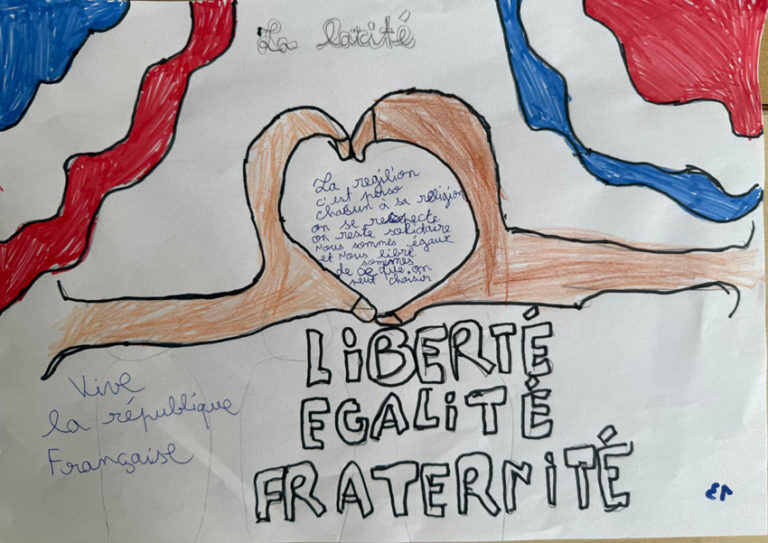 La laïcité
La regilion
c'est perso
chacun à sa religion
on se respecte
on reste solidaire
nous sommes égaux
et nous libre
sommes
de ce que on
veut choisir
LIBERTÉ
EGALITÉ
FRATERNITÉ
Vive
la république
Française